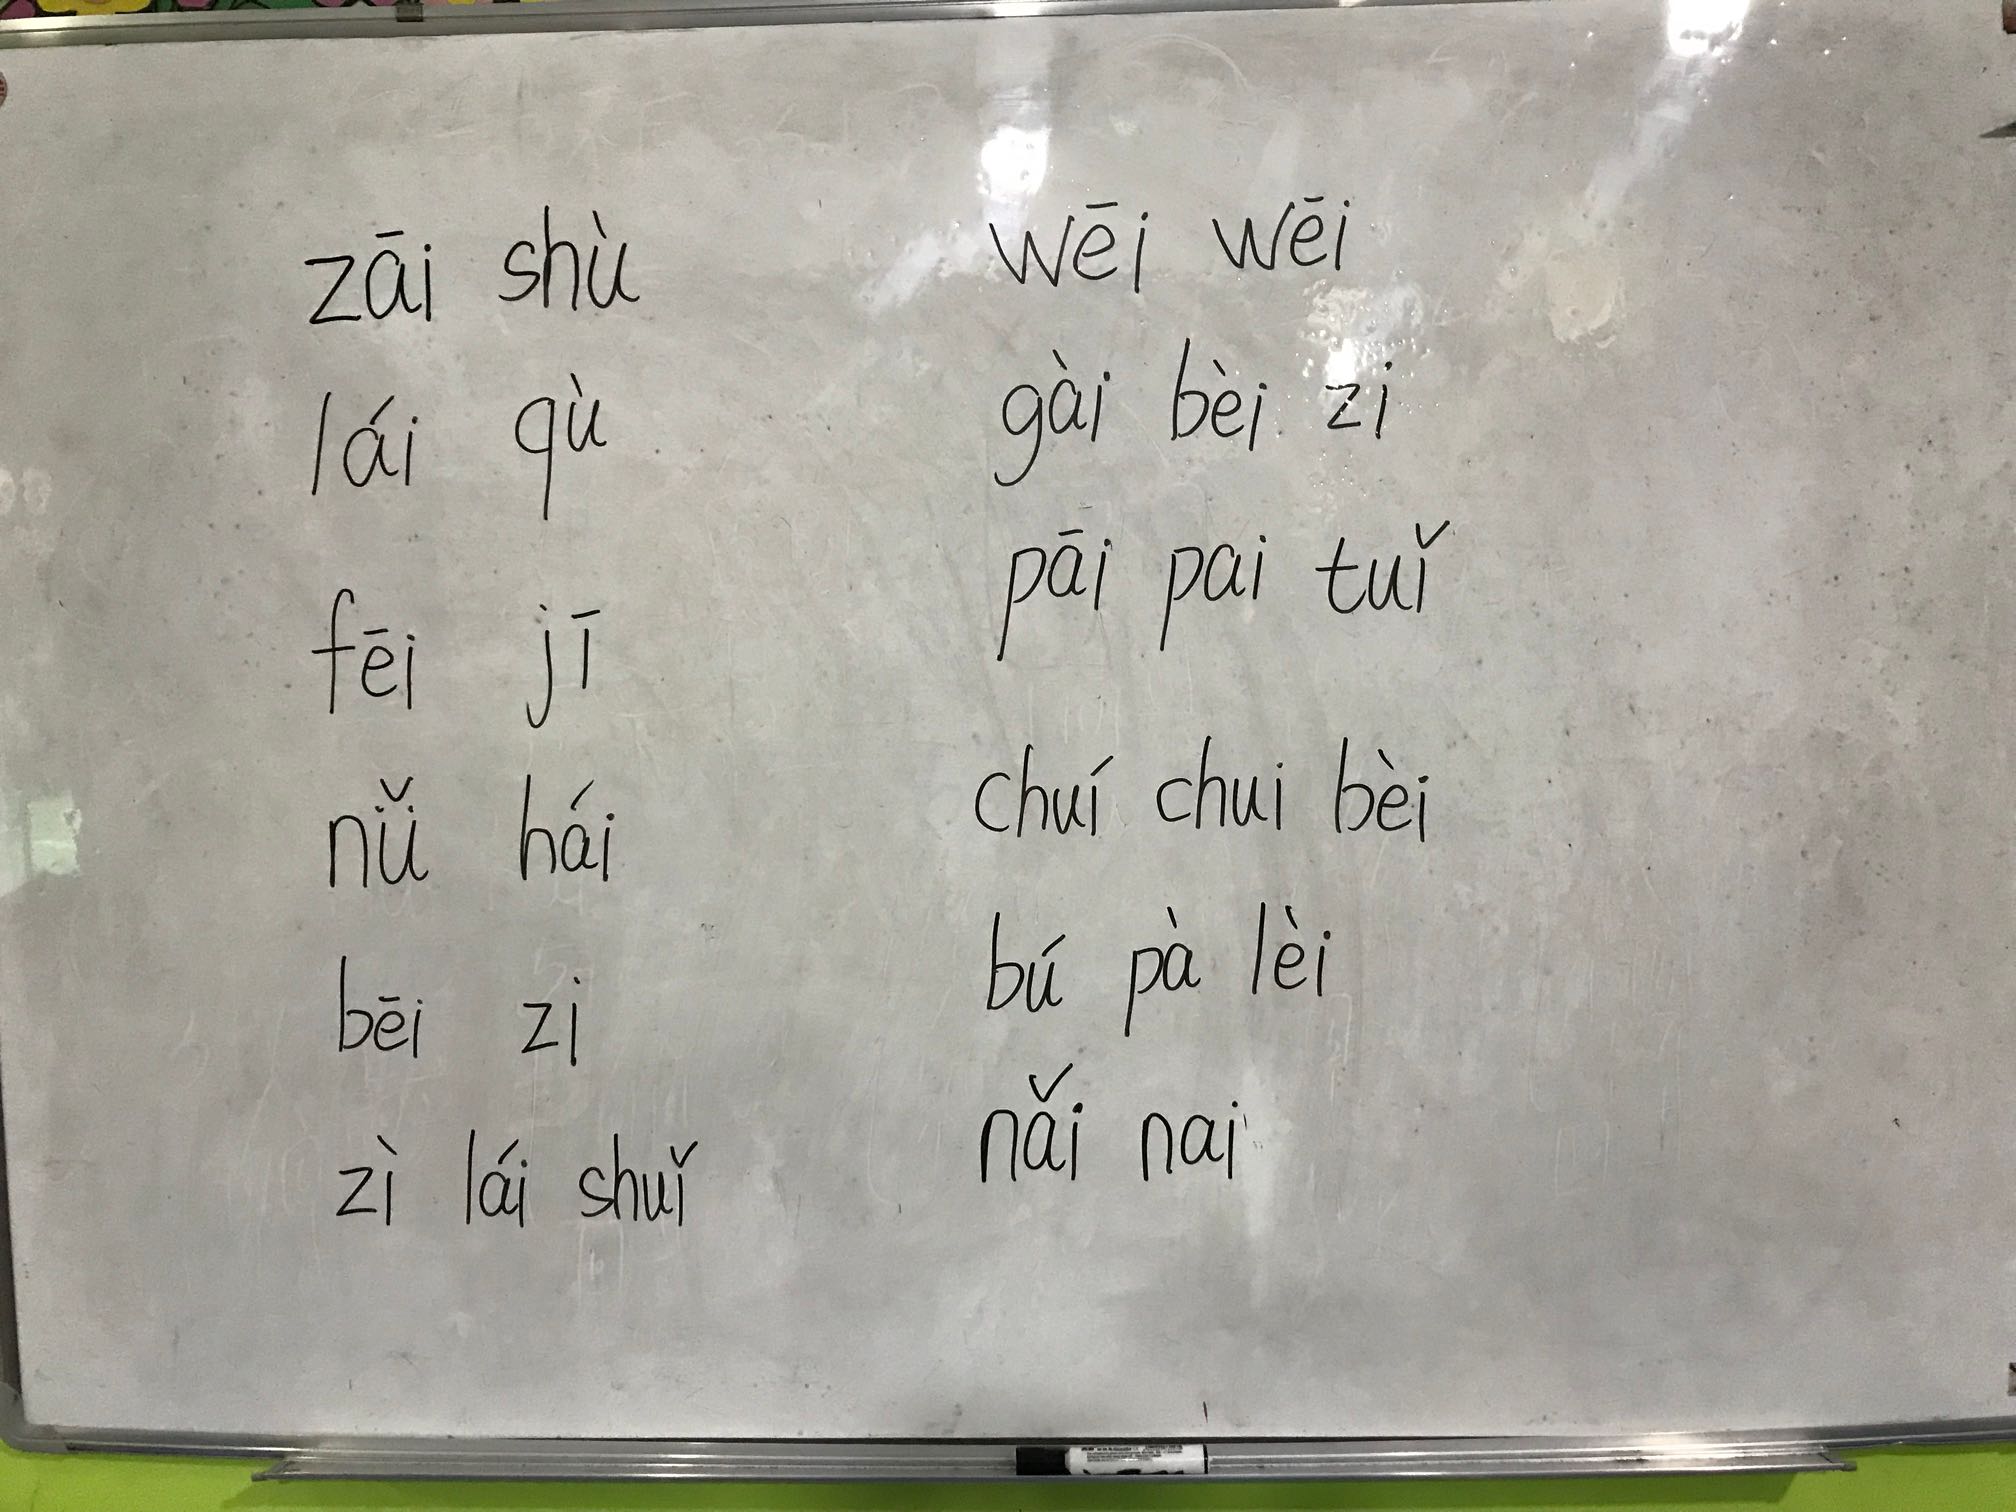 zāi shù
lái qù
fēi jī
nǚ hái
bēi zi
zì lái shuǐ
wēi wēi
gài bèi zi
pāi pai tuǐ
chuí chui bèi
bú pà lèi
nǎi nai